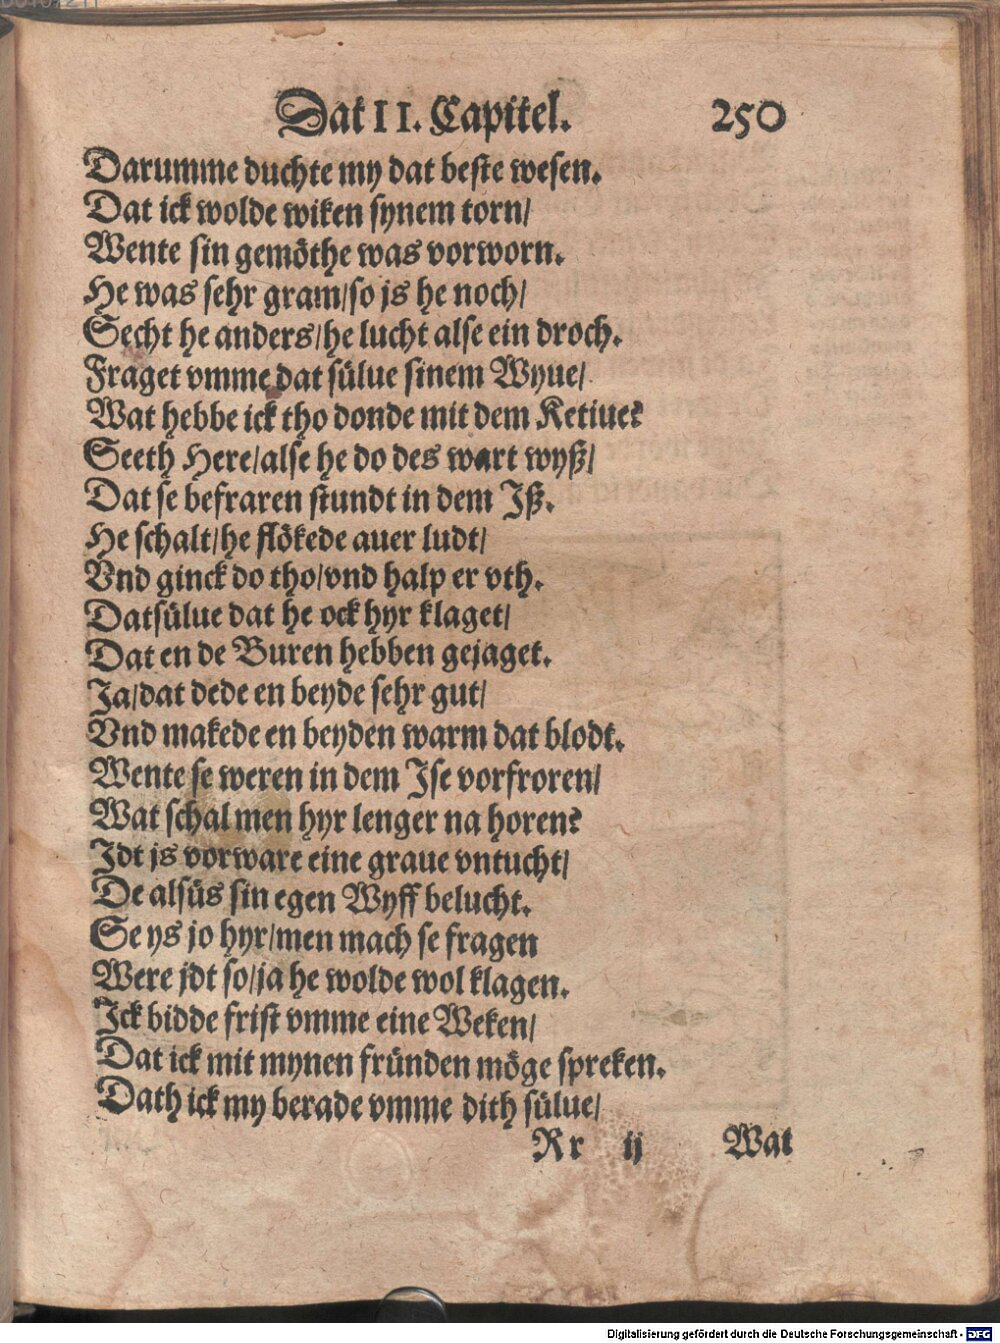 Dat II. Capitel. 250
Darumme duchte my dat beste wesen.
Dat ick wolde wiken synem torn/
Wente sin gemöthe was vorworn.
He was sehr gram/so js he noch/
Secht he anders/he lucht alse ein droch.
Fraget vmme dat sülue sinem Wyue/
Wat hebbe ick tho donde mit dem Ketiue?
Seeth Here/alse he do des wart wyß/
Dat se befraren stundt in dem Iß.
He schalt/he flökede auer ludt/
Vnd ginck do tho/vnd halp er vth.
Datsülue dat he ock hyr klaget/
Dat en de Buren hebben gejaget.
Ja/dat dede en beyde sehr gut/
Vnd makede en beyden warm dat blodt.
Wente se weren in dem Ise vorfroren/
Wat schal men hyr lenger na horen?
Idt js vorware eine graue vntucht/
De alsüs sin egen Wyff belucht.
Se ys jo hyr/men mach se fragen
Were jdt so/ja he wolde wol klagen.
Ick bidde frist vmme eine Weken/
Dat ick mit mynen fründen möge spreken.
Dath ick my berade vmme dith sülue/
Rr ij Wat
Digitalisierung gefördert durch die Deutsche Forschungsgemeinschaft - DFG